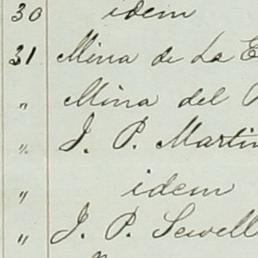 30 idem
31 Mina de La
" Mina del
" J. P. Martin
" idem
" J. P. Sewell